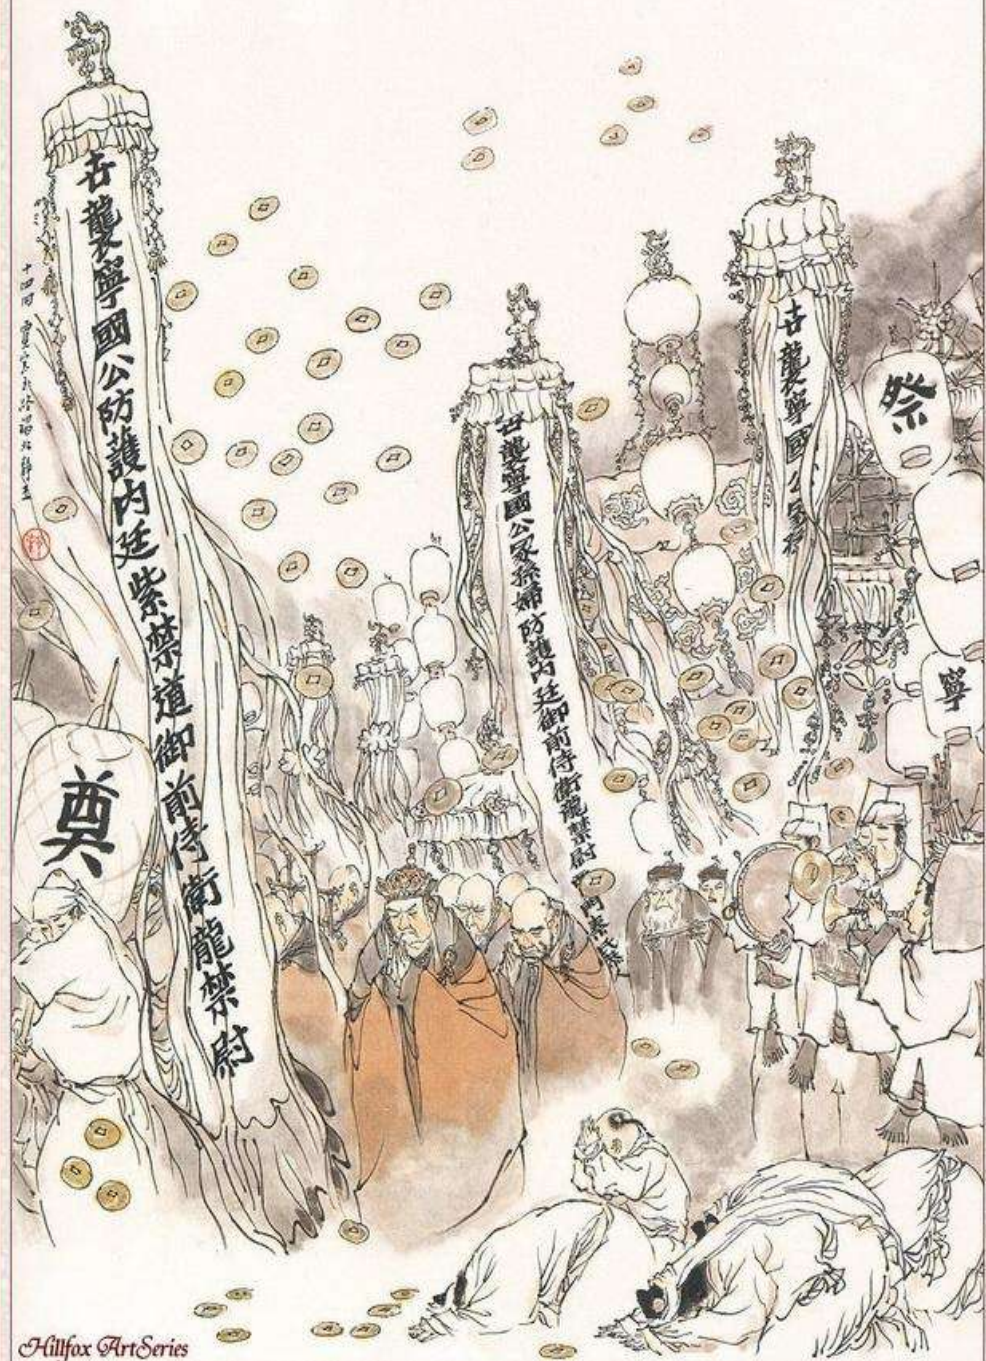 世襲寧國公防護內廷紫禁道御前侍衛龍禁尉
世襲寧國公冢孫婦防護內廷御前侍衛龍禁尉 門秦氏
世襲寧國公冢孫
祭
寧
奠
十四回
Hillfox ArtSeries